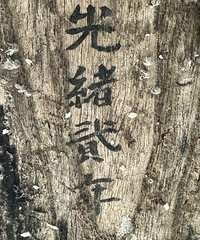 光緒貳年